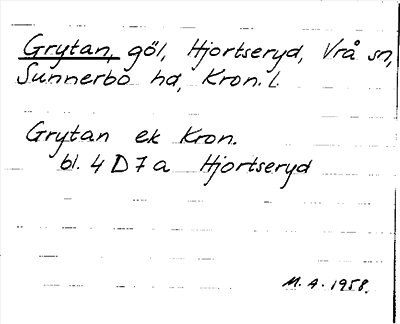 Grytan, göl, Hjortseryd, Vrå sn,
Sunnerbo hd, Kron. l.
Grytan ek Kron.
bl. 4 D 7 a Hjortseryd
M. A. 1958.